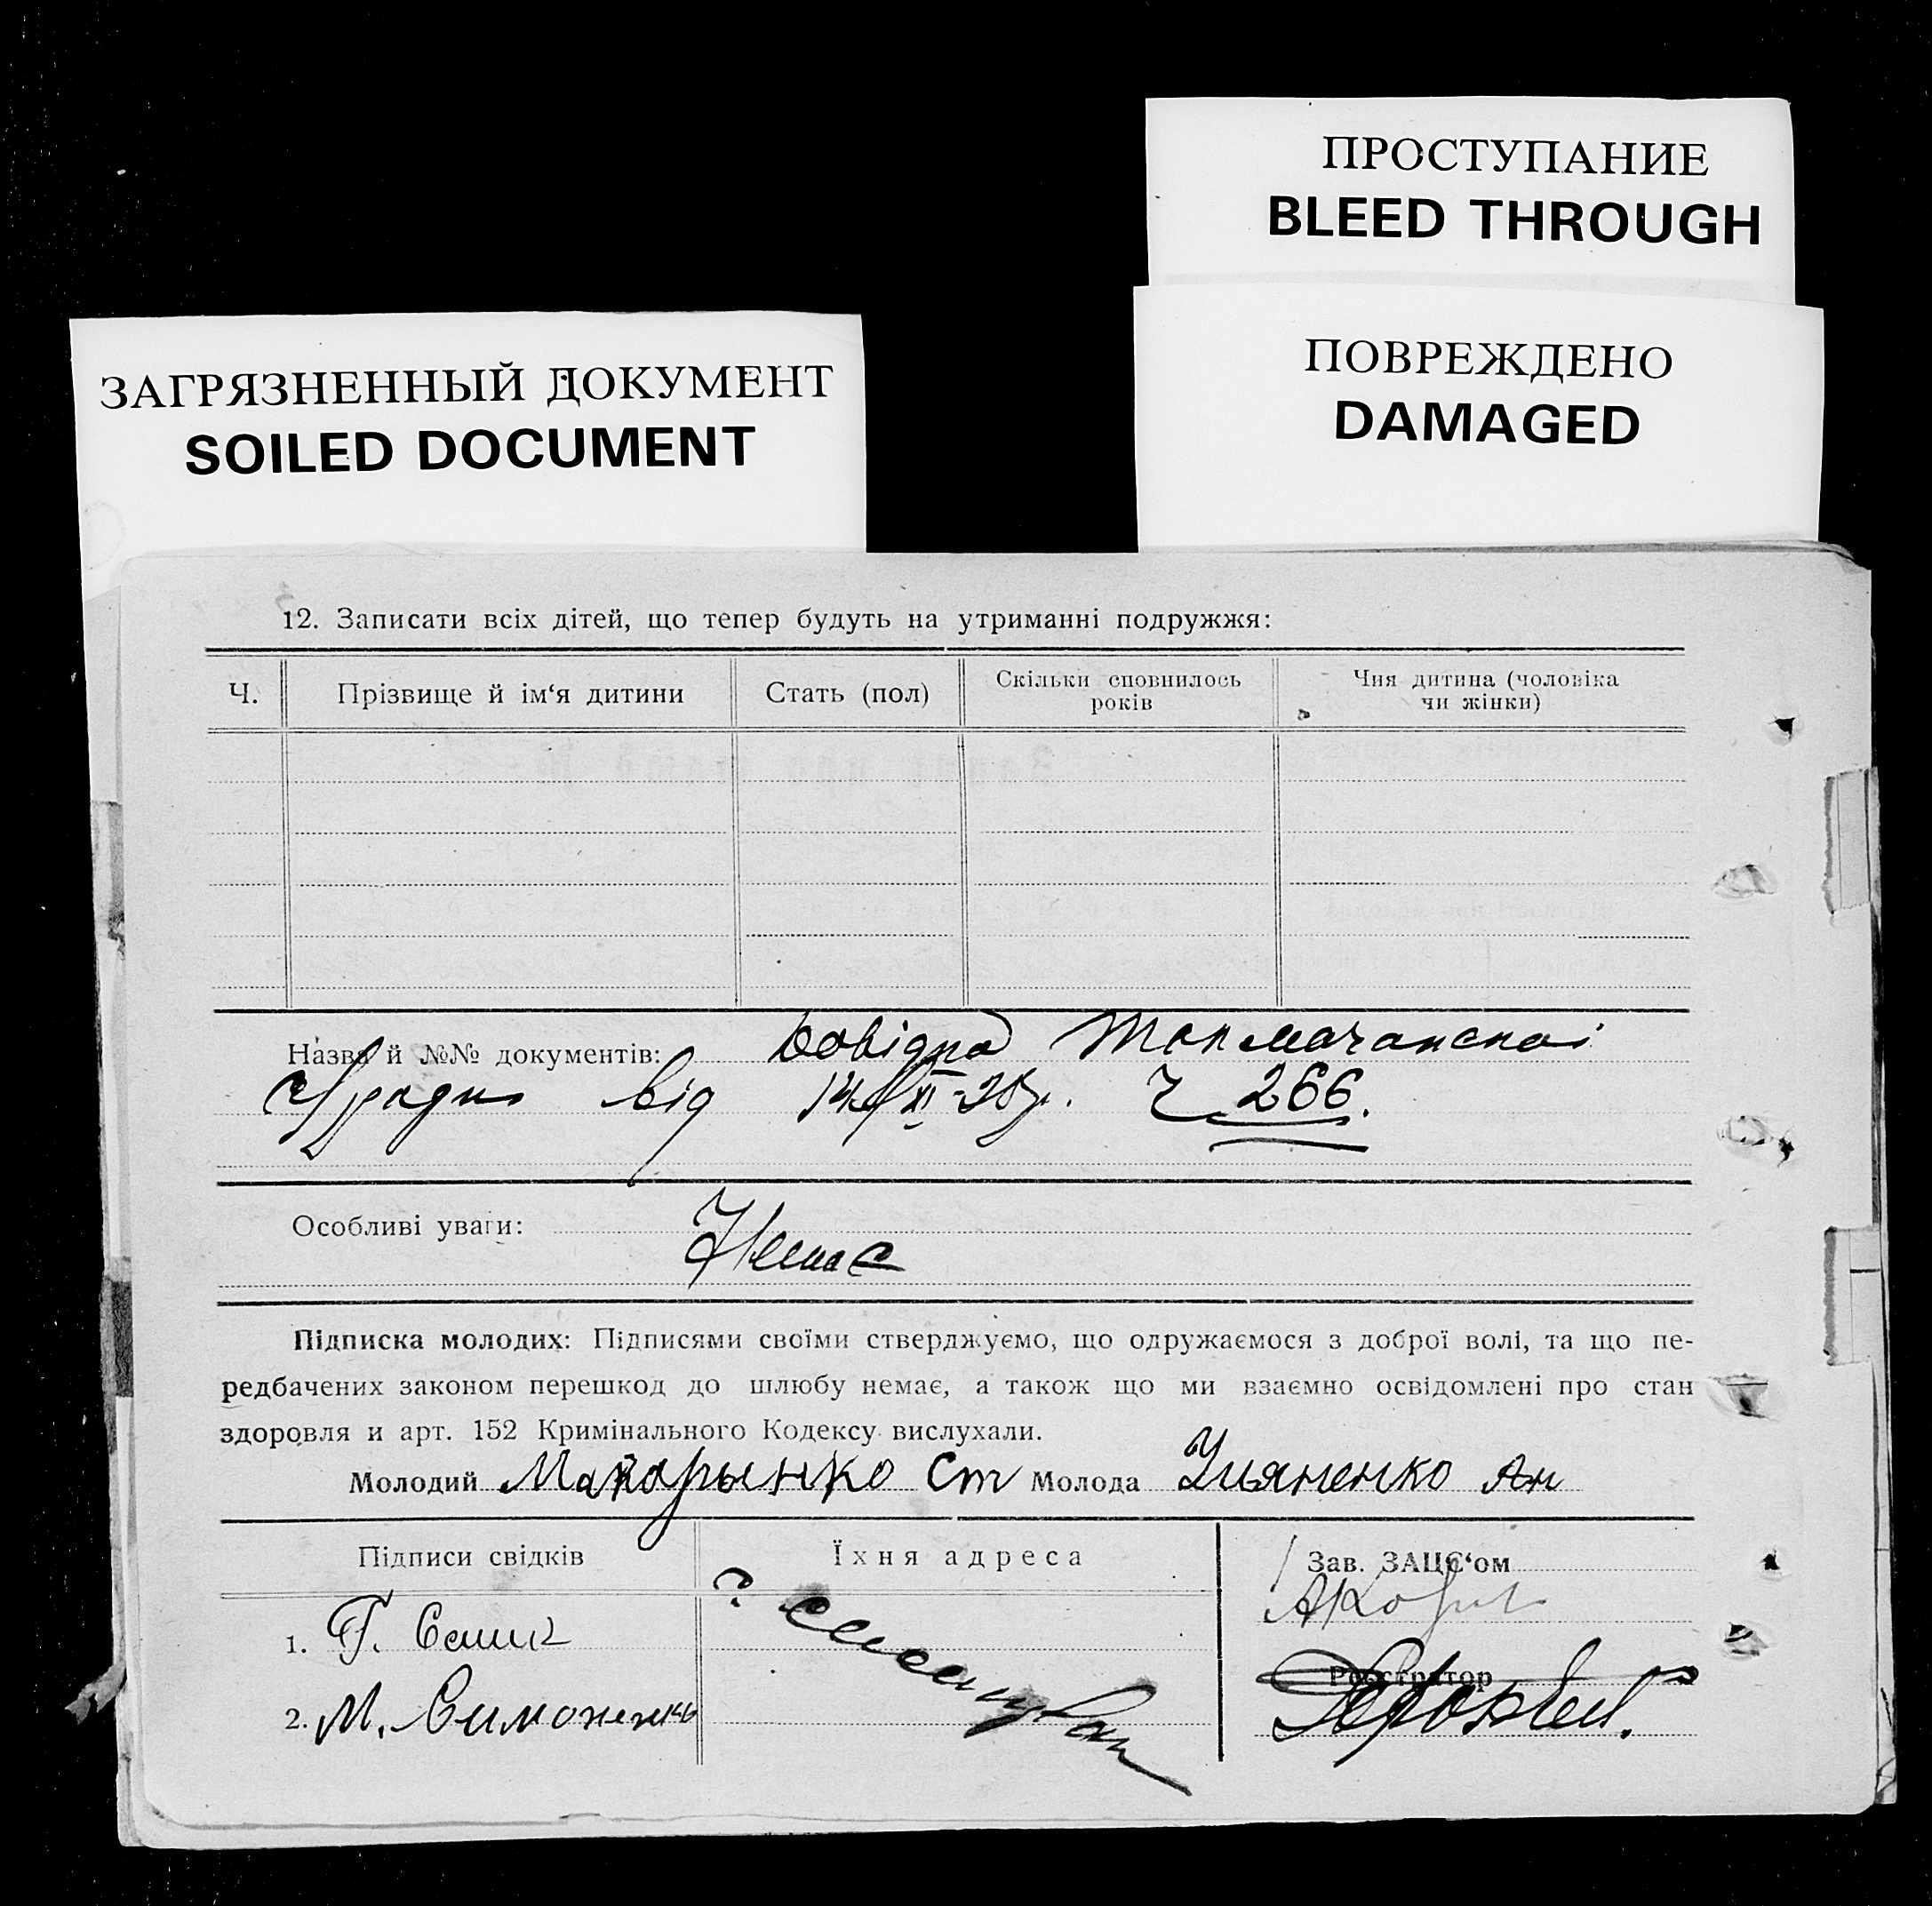 ПРОСТУПАНИЕ
BLEED THROUGH
ПОВРЕЖДЕНО
DAMAGED
ЗАГРЯЗНЕННЫЙ ДОКУМЕНТ
SOILED DOCUMENT
12. Записати всіх дітей, що тепер будуть на утриманні подружжя:
Ч. Прізвище й ім‘я дитини Стать (пол) Скільки сповнилось років Чия дитина (чоловіка чи жінки)
Назва й №№ документів: Довідка Токмачанської
с/ради від 14/XI-28р. Ч 266.
Особливі уваги: Немає
Підписка молодих: Підписями своїми стверджуємо, що одружаємося з доброї волі, та що пе-
редбачених законом перешкод до шлюбу немає, а також що ми взаємно освідомлені про стан
здоровля и арт. 152 Кримінального Кодексу вислухали.
Молодий Макарынко Ст Молода Уляненко Ан
Підписи свідків Їхня адреса Зав. ЗАЦС‘ом
1. Г.
Реєстратор
2. М. Симоненко